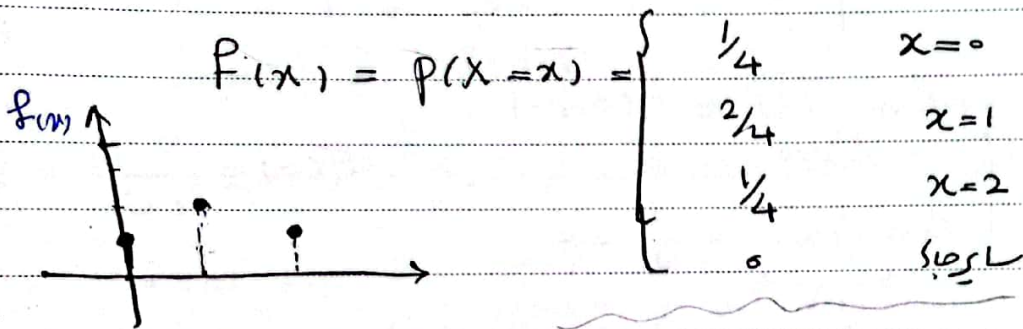 f(x) = P(X = x) = { 1/4 x = 0
2/4 x = 1
1/4 x = 2
0 سایر جاها
f(x)